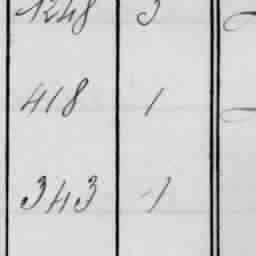 1248 5
418 1
343 1